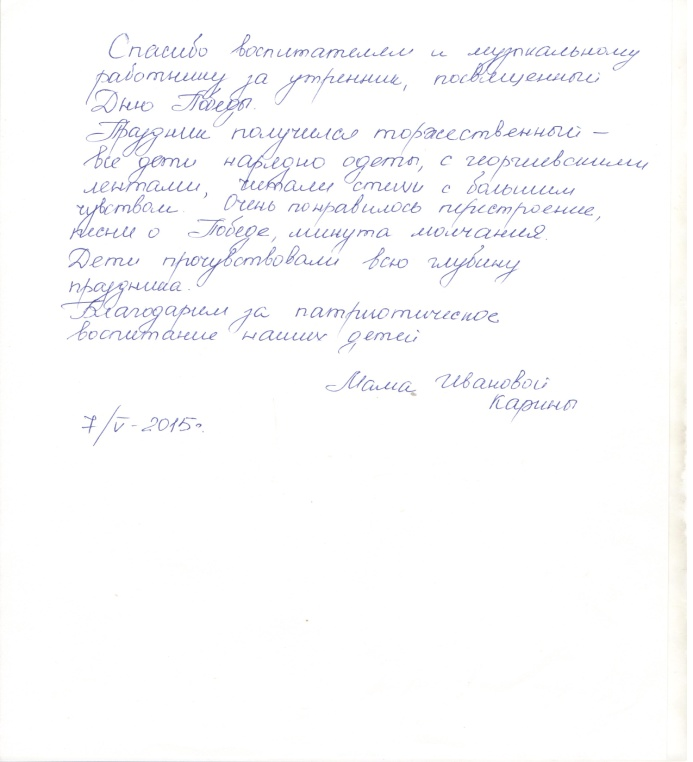 Спасибо воспитателям и музыкальному
работнику за утренник, посвященный
Дню Победы.
Праздник получился торжественный –
все дети нарядно одеты, с георгиевскими
лентами, читали стихи с большим
чувством. Очень понравилось перистроение,
песни о Победе, минута молчания.
Дети прочувствовали всю глубину
праздника.
Благодарим за патриотическое
воспитание наших детей
Мама Ивановой
Карины
7/V-2015г.